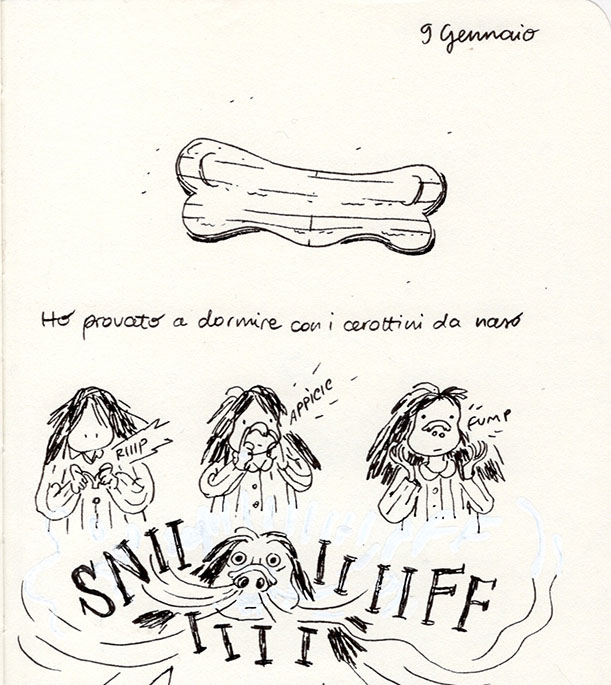 9 Gennaio
Ho provato a dormire con i cerottini da naso
RIIIP
APPICIC
FUMP
SNII IIIIIFF
IIII